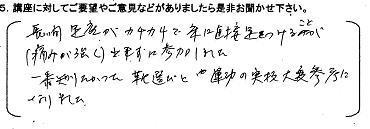 5. 講座に対してご要望やご意見などがありましたら是非お聞かせ下さい。
長時間 足底がカチカチで床に直接足をつけること が
(痛みが強く)出来ずに参加しました
一番知りたかった 靴選びと 運動の実技 大変参考に
なりました